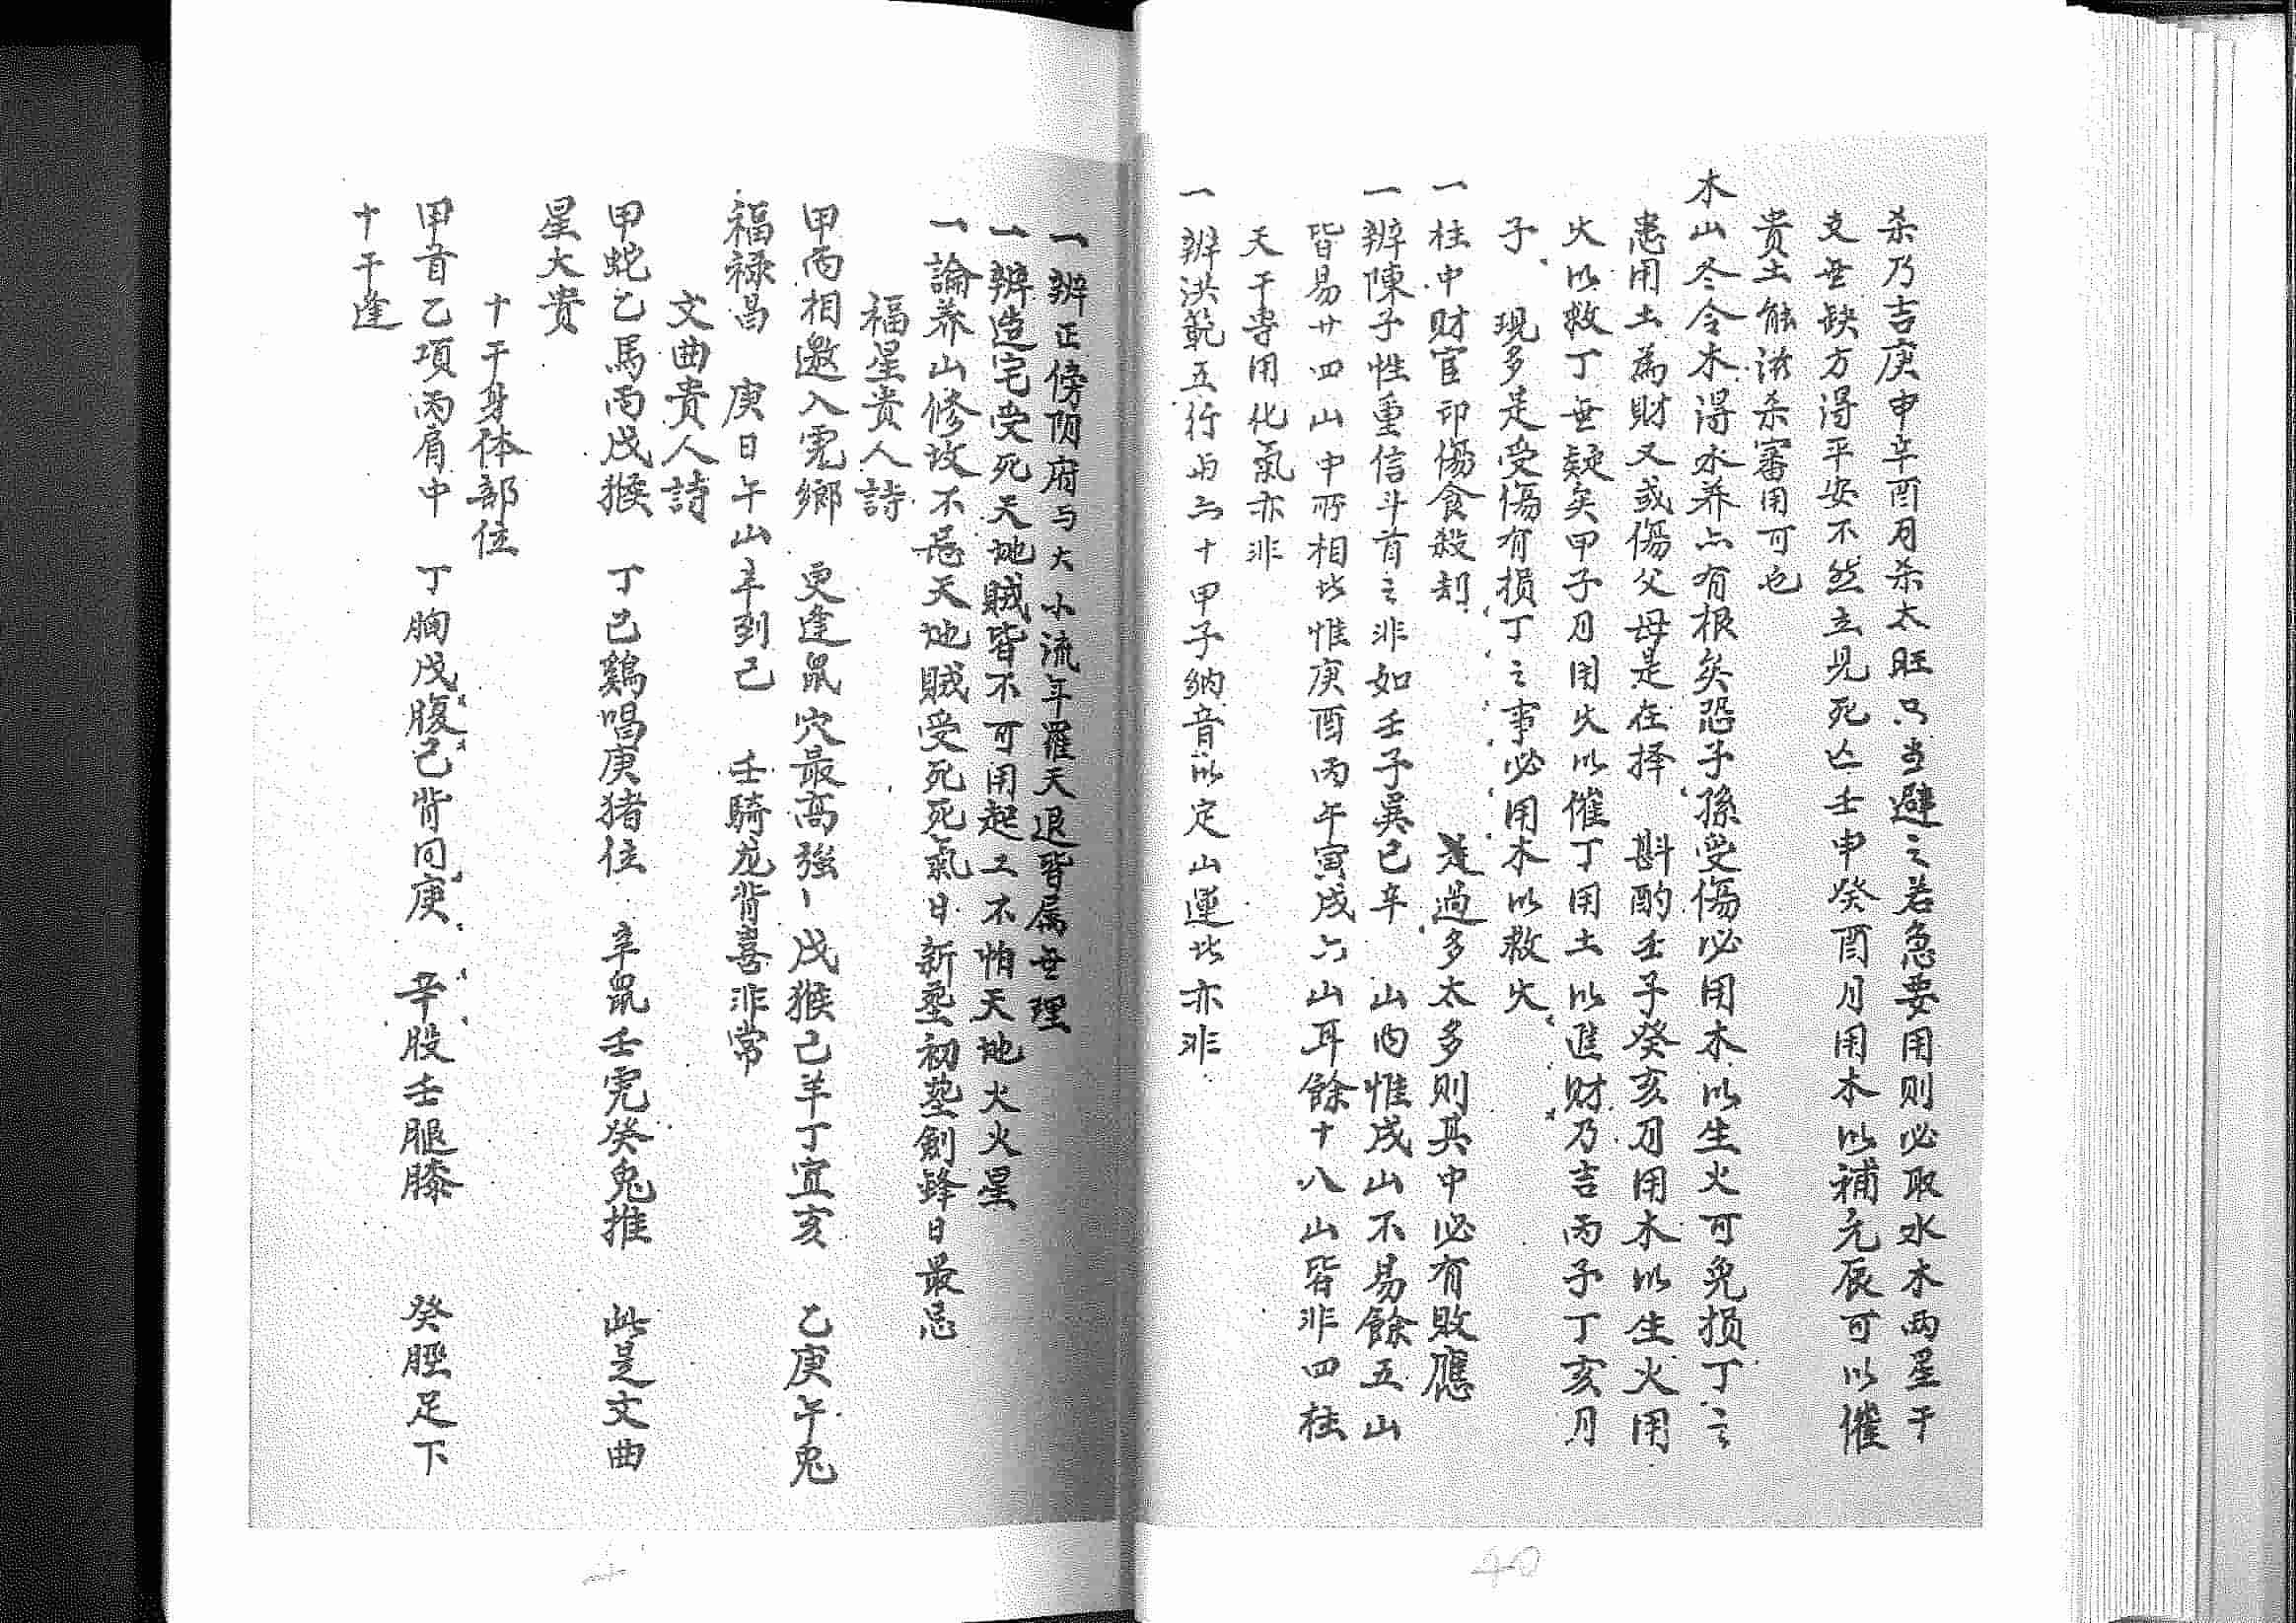 杀乃吉庚申辛酉月杀太旺只当避之若急要用则必取水木两星干
支無缺方得平安不然立見死亡壬申癸酉月用木以補元辰可以催
贵土能洩杀審用可也
木山冬令木得水养亦有根矣恐子孫受傷必用木以生火可免损丁之
患用土為財又或傷父母是在择 斟酌壬子癸亥月用木以生火用
火以救丁無疑矣甲子月用火以催丁用土以進财乃吉丙子丁亥月
子 現多是受傷有损丁之事必用木以救火
一柱中财官印傷食殺刦 是過多太多则其中必有敗應
一辨陳子性重信斗首之非如壬子巽巳辛 山内惟戌山不易餘五山
皆易廿四山中所相此惟庚酉丙午寅戌六山耳餘十八山皆非四柱
天干専用化氣亦非
一辨洪範五行与六十甲子納音以定山運此亦非
一辨正傍阴府与大小流年羅天退皆属無理
一辨造宅受死天地賊皆不可用起工不怕天地火火星
一論养山修坟不忌天地賊受死死氣日新塟初塟劍鋒日最忌
福星贵人詩
甲丙相邀入虎鄉 更逢鼠穴最高強 戊猴己羊丁宜亥 乙庚午兎
福禄昌 庚日午山辛到己 壬騎龙背喜非常
文曲貴人詩
甲蛇乙馬丙戊猴 丁己鷄唱庚猪位 辛鼠壬虎癸兔推 此是文曲
星大贵
十干身体部位
甲首乙項丙肩中 丁胸戊腹己背同庚 辛股壬腿膝 癸脛足下
十干逢
40